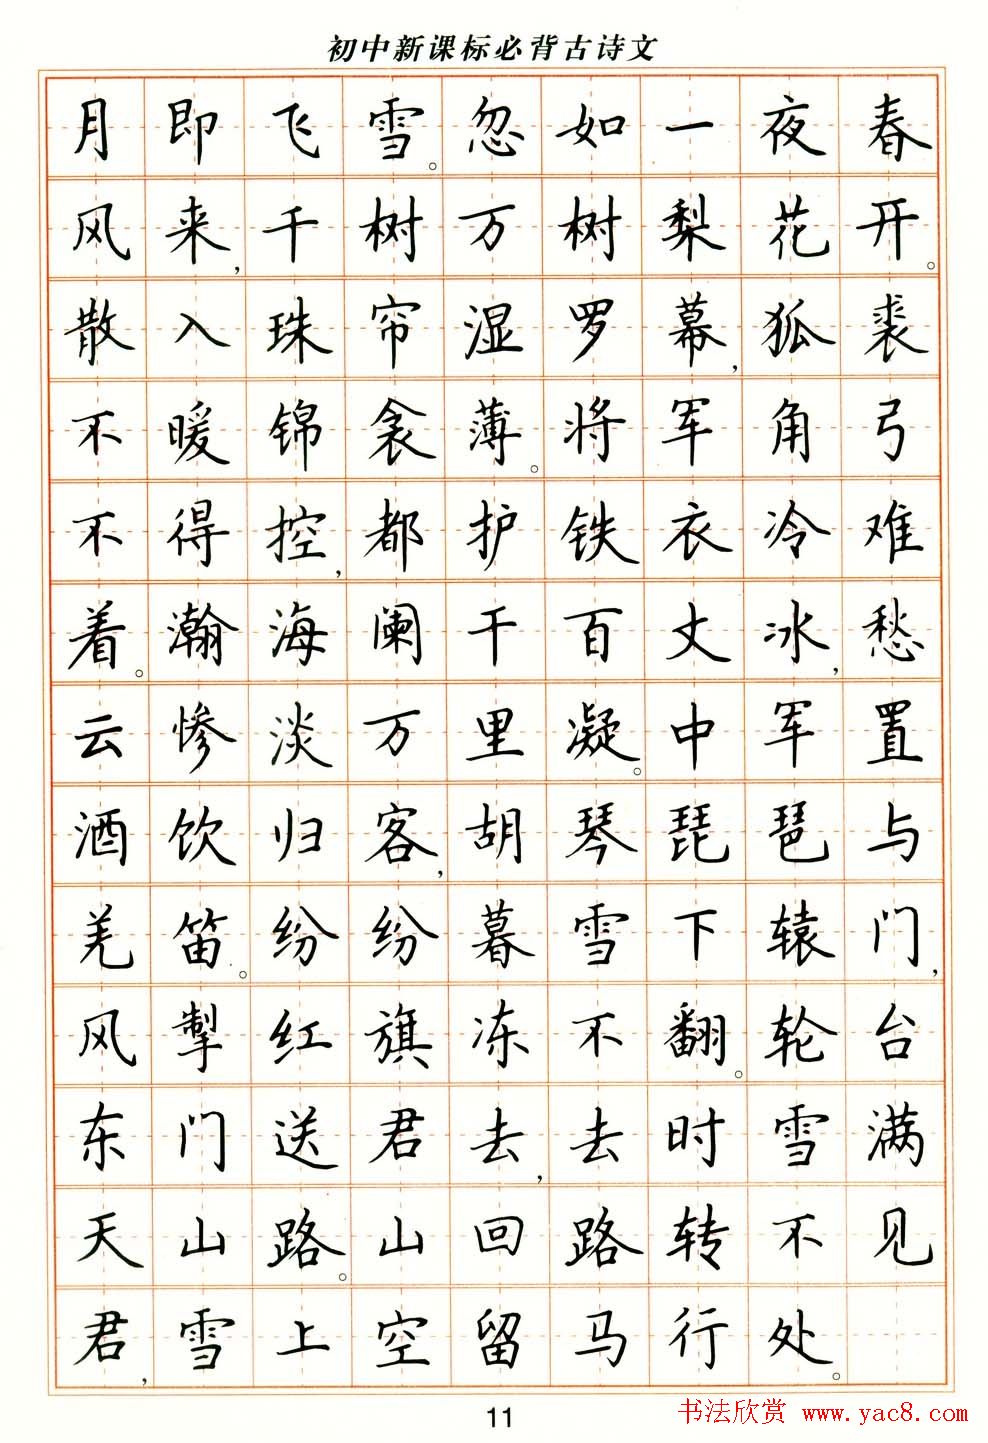 初中新课标必背古诗文
月即飞雪。忽如一夜春
风来,千树万树梨花开。
散入珠帘湿罗幕,狐裘
不暖锦衾薄。将军角弓
不得控,都护铁衣冷难
着。瀚海阑干百丈冰,愁
云惨淡万里凝。中军置
酒饮归客,胡琴琵琶与
羌笛。纷纷暮雪下辕门,
风掣红旗冻不翻。轮台
东门送君去,去时雪满
天山路。山回路转不见
君,雪上空留马行处。
11
书法欣赏 www.yac8.com